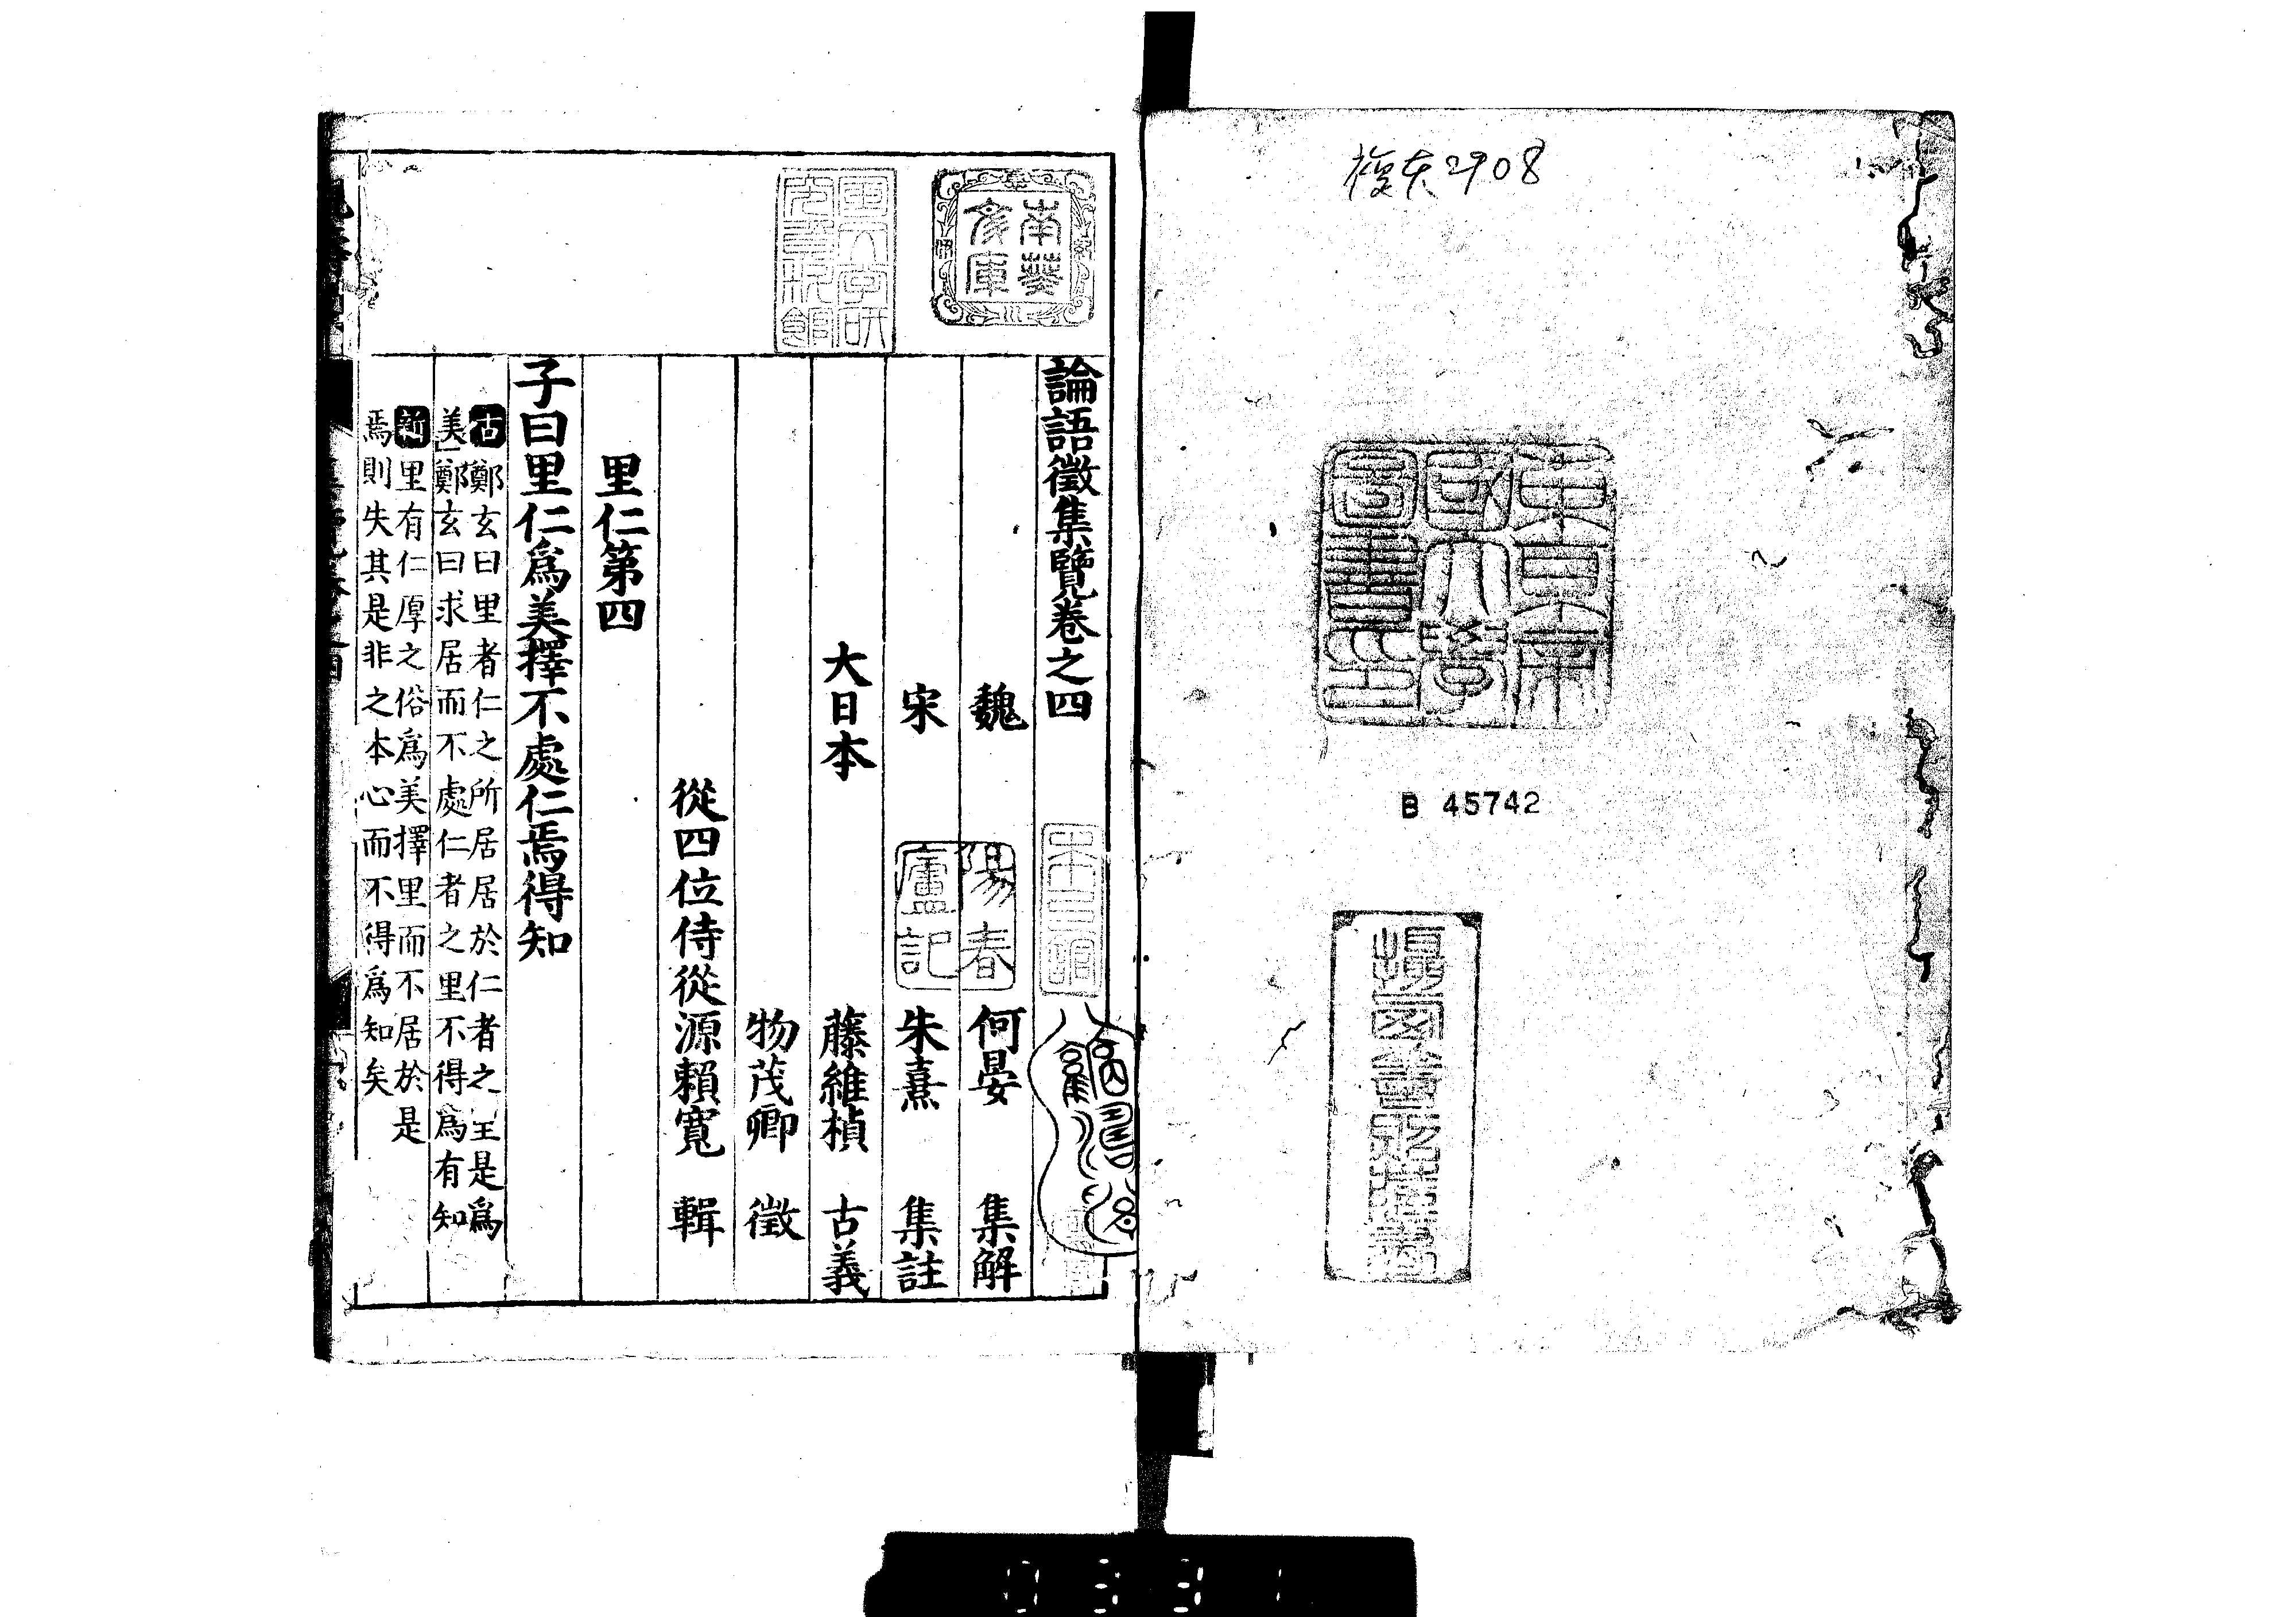 複衣2908
東京帝國大學圖書印
B 45742
南葵文庫
陽春廬記
論語徵集覽卷之四
魏　何晏　集解
宋　朱熹　集註
大日本　藤維楨　古義
物茂卿　徵
從四位侍從源賴寬　輯
里仁第四
子曰里仁爲美擇不處仁焉得知
古鄭玄曰里者仁之所居居於仁者之里是爲
美鄭玄曰求居而不處仁者之里不得爲有知
新里有仁厚之俗爲美擇里而不居於是
焉則失其是非之本心而不得爲知矣
0331